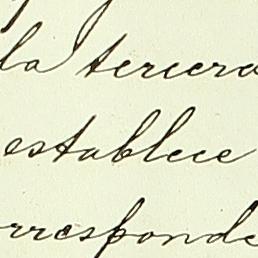 la tercera
establece
orresponde